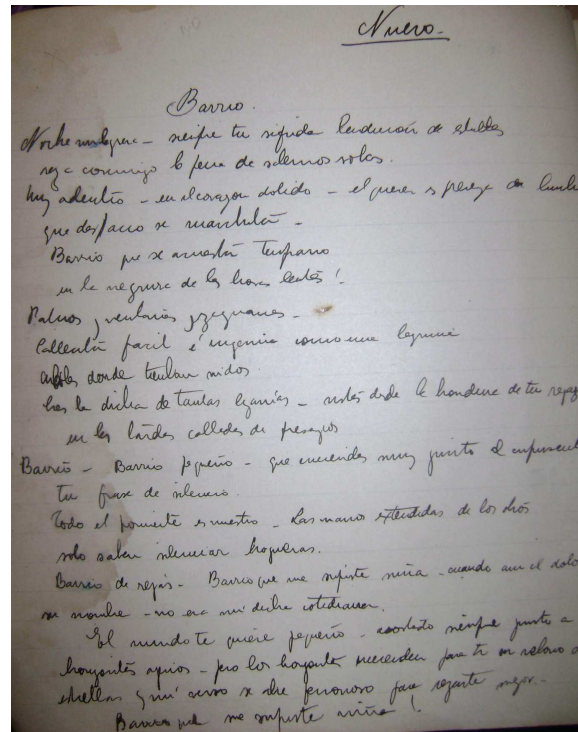 Nuevo.
Barrio.
Noche milagrera – siempre tu bendición de estrellas
reza conmigo la pena de sabernos solas.
Muy adentro – en el corazón dolido – el querer es
que despacio se marchita –
Barrio que se acuesta temprano
en la negrura de las horas lentas!
Patios y ventanas y zaguanes –
Callecita fácil é ingenua como una lagrima
donde tiemblan nidos
la dicha de tantas – desde la hondura de tu
en las tardes calladas de presagios
Barrio – Barrio pequeño – que enciendes muy junto al
tu frase de silencio.
Todo el poniente es nuestro – Las manos extendidas de los dos
solo saben silenciar hogueras.
Barrio de rejas – Barrio que me supiste niña – cuando aun el dolor
su nombre – no era mi dicha cotidiana.
El mundo te quiere pequeño – acostado siempre junto a
horizontes – pero los horizontes encienden para ti su
estrellas y mi verso se abre para rezarte mejor –
Barrio que me supiste niña!